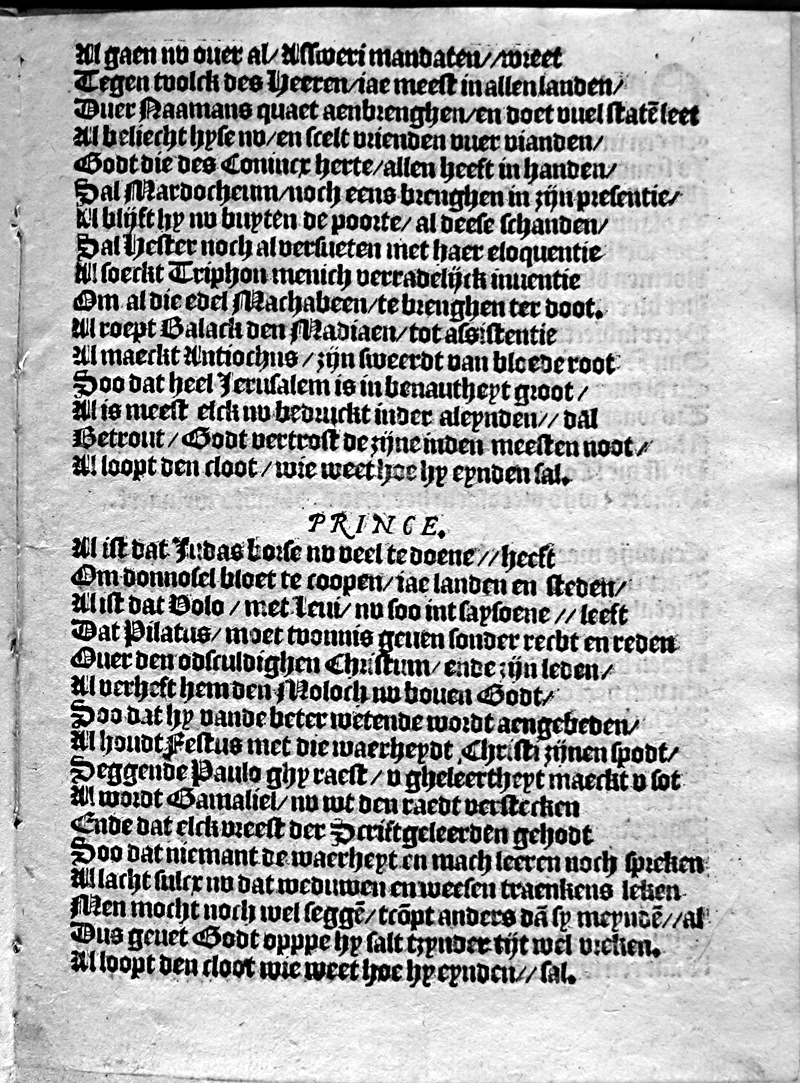 Al gaen nv ouer al/ Assweri mandaten//wreet
Tegen tvolck des Heeren/iae meest in allen landen/
Duer Naamans quaet aenbrenghen/en doet vuel statē leet
Al beliecht hyse nv/en scelt vrienden vuer vianden/
Godt die des Conincx herte/allen heeft in handen/
Sal Mardocheum/noch eens brenghen in zijn presentie/
Al blijft hy nv buyten de poorte/ al deese schanden/
Sal Hester noch al versueten met haer eloquentie
Al soeckt Triphon menich verradelijck inuentie
Om al die edel Machabeen/te brenghen ter doot.
Al roept Balack den Madiaen/tot assistentie
Al maeckt Antiochus /zijn sweerdt van bloede root
Soo dat heel Jerusalem is in benautheyt groot/
Al is meest elck nv bedruckt inder aleynden// dal
Betrout/ Godt vertrost de zijne inden meesten noot/
Al loopt den cloot/wie weet hoe hy eynden sal.
PRINCE.
Al ist dat Judas borse nv veel te doene//heeft
Om donnosel bloet te coopen/iae landen en steden/
Al ist dat Volo/met Leui/nv soo int saysoene // leeft
Dat Pilatus/moet tvonnis geuen sonder recht en reden
Ouer den odsculdighen Christum/ende zijn leden/
Al verheft hem den Moloch nv bouen Godt/
Soo dat hy vande beter wetende wordt aengebeden/
Al houdt Festus met die waerheydt ,Christi zijnen spodt/
Seggende Paulo ghy raest/ v gheleertheyt maeckt v sot
Al wordt Gamaliel/nv wt den raedt verstecken
Ende dat elck vreest der Scriftgeleerden gehodt
Soo dat niemant de waerheyt en mach leeren noch spreken
Al lacht sulcx nv dat weduwen en weesen traenkens leken
Men mocht noch wel seggē/tcōpt anders dā sy meyndē//al
Dus geuet Godt opppe hy salt tzynder tijt wel vreken.
Al loopt den cloot wie weet hoe hy eynden//sal.